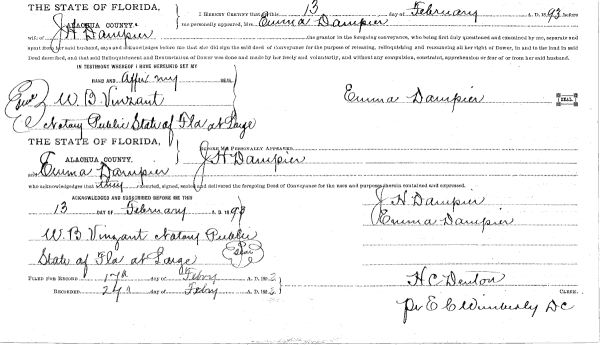 THE STATE OF FLORIDA,
ALACHUA COUNTY.
I HEREBY CERTIFY that on this 13 day of February A.D. 1893 before
me personally appeared, Mrs. Emma Dampier
wife of J H Dampier the grantor in the foregoing conveyance, who being first duly questioned and examined by me, separate and
apart from her said husband, says and acknowledges before me that she did sign the said deed of conveyance for the purpose of releasing, relinquishing and renouncing all her right of Dower, in and to the land in said
Deed described, and that said Relinquishment and Renunciation of Dower was done and made by her freely and voluntarily, and without any compulsion, constraint, apprehension or fear of or from her said husband.
IN TESTIMONY WHEREOF I HAVE HEREUNTO SET MY
HAND AND Affix my SEAL.
W. B Vinzant
Emma Dampier SEAL.
Notary Public State of Fla at Large
THE STATE OF FLORIDA,
ALACHUA COUNTY.
BEFORE ME PERSONALLY APPEARED J H Dampier
Emma Dampier
who acknowledges that they executed, signed, sealed and delivered the foregoing Deed of Conveyance for the uses and purposes therein contained and expressed.
ACKNOWLEDGED AND SUBSCRIBED BEFORE ME THIS
13 DAY OF February A. D. 1893
J. H. Dampier
Emma Dampier
W. B Vinzant Notary Public
State of Fla at Large Seal
FILED FOR RECORD 17th day of Febry A. D. 1893
RECORDED 24th day of Febry A. D. 1893
H C Denton CLERK.
Pr E C Wimberly DC